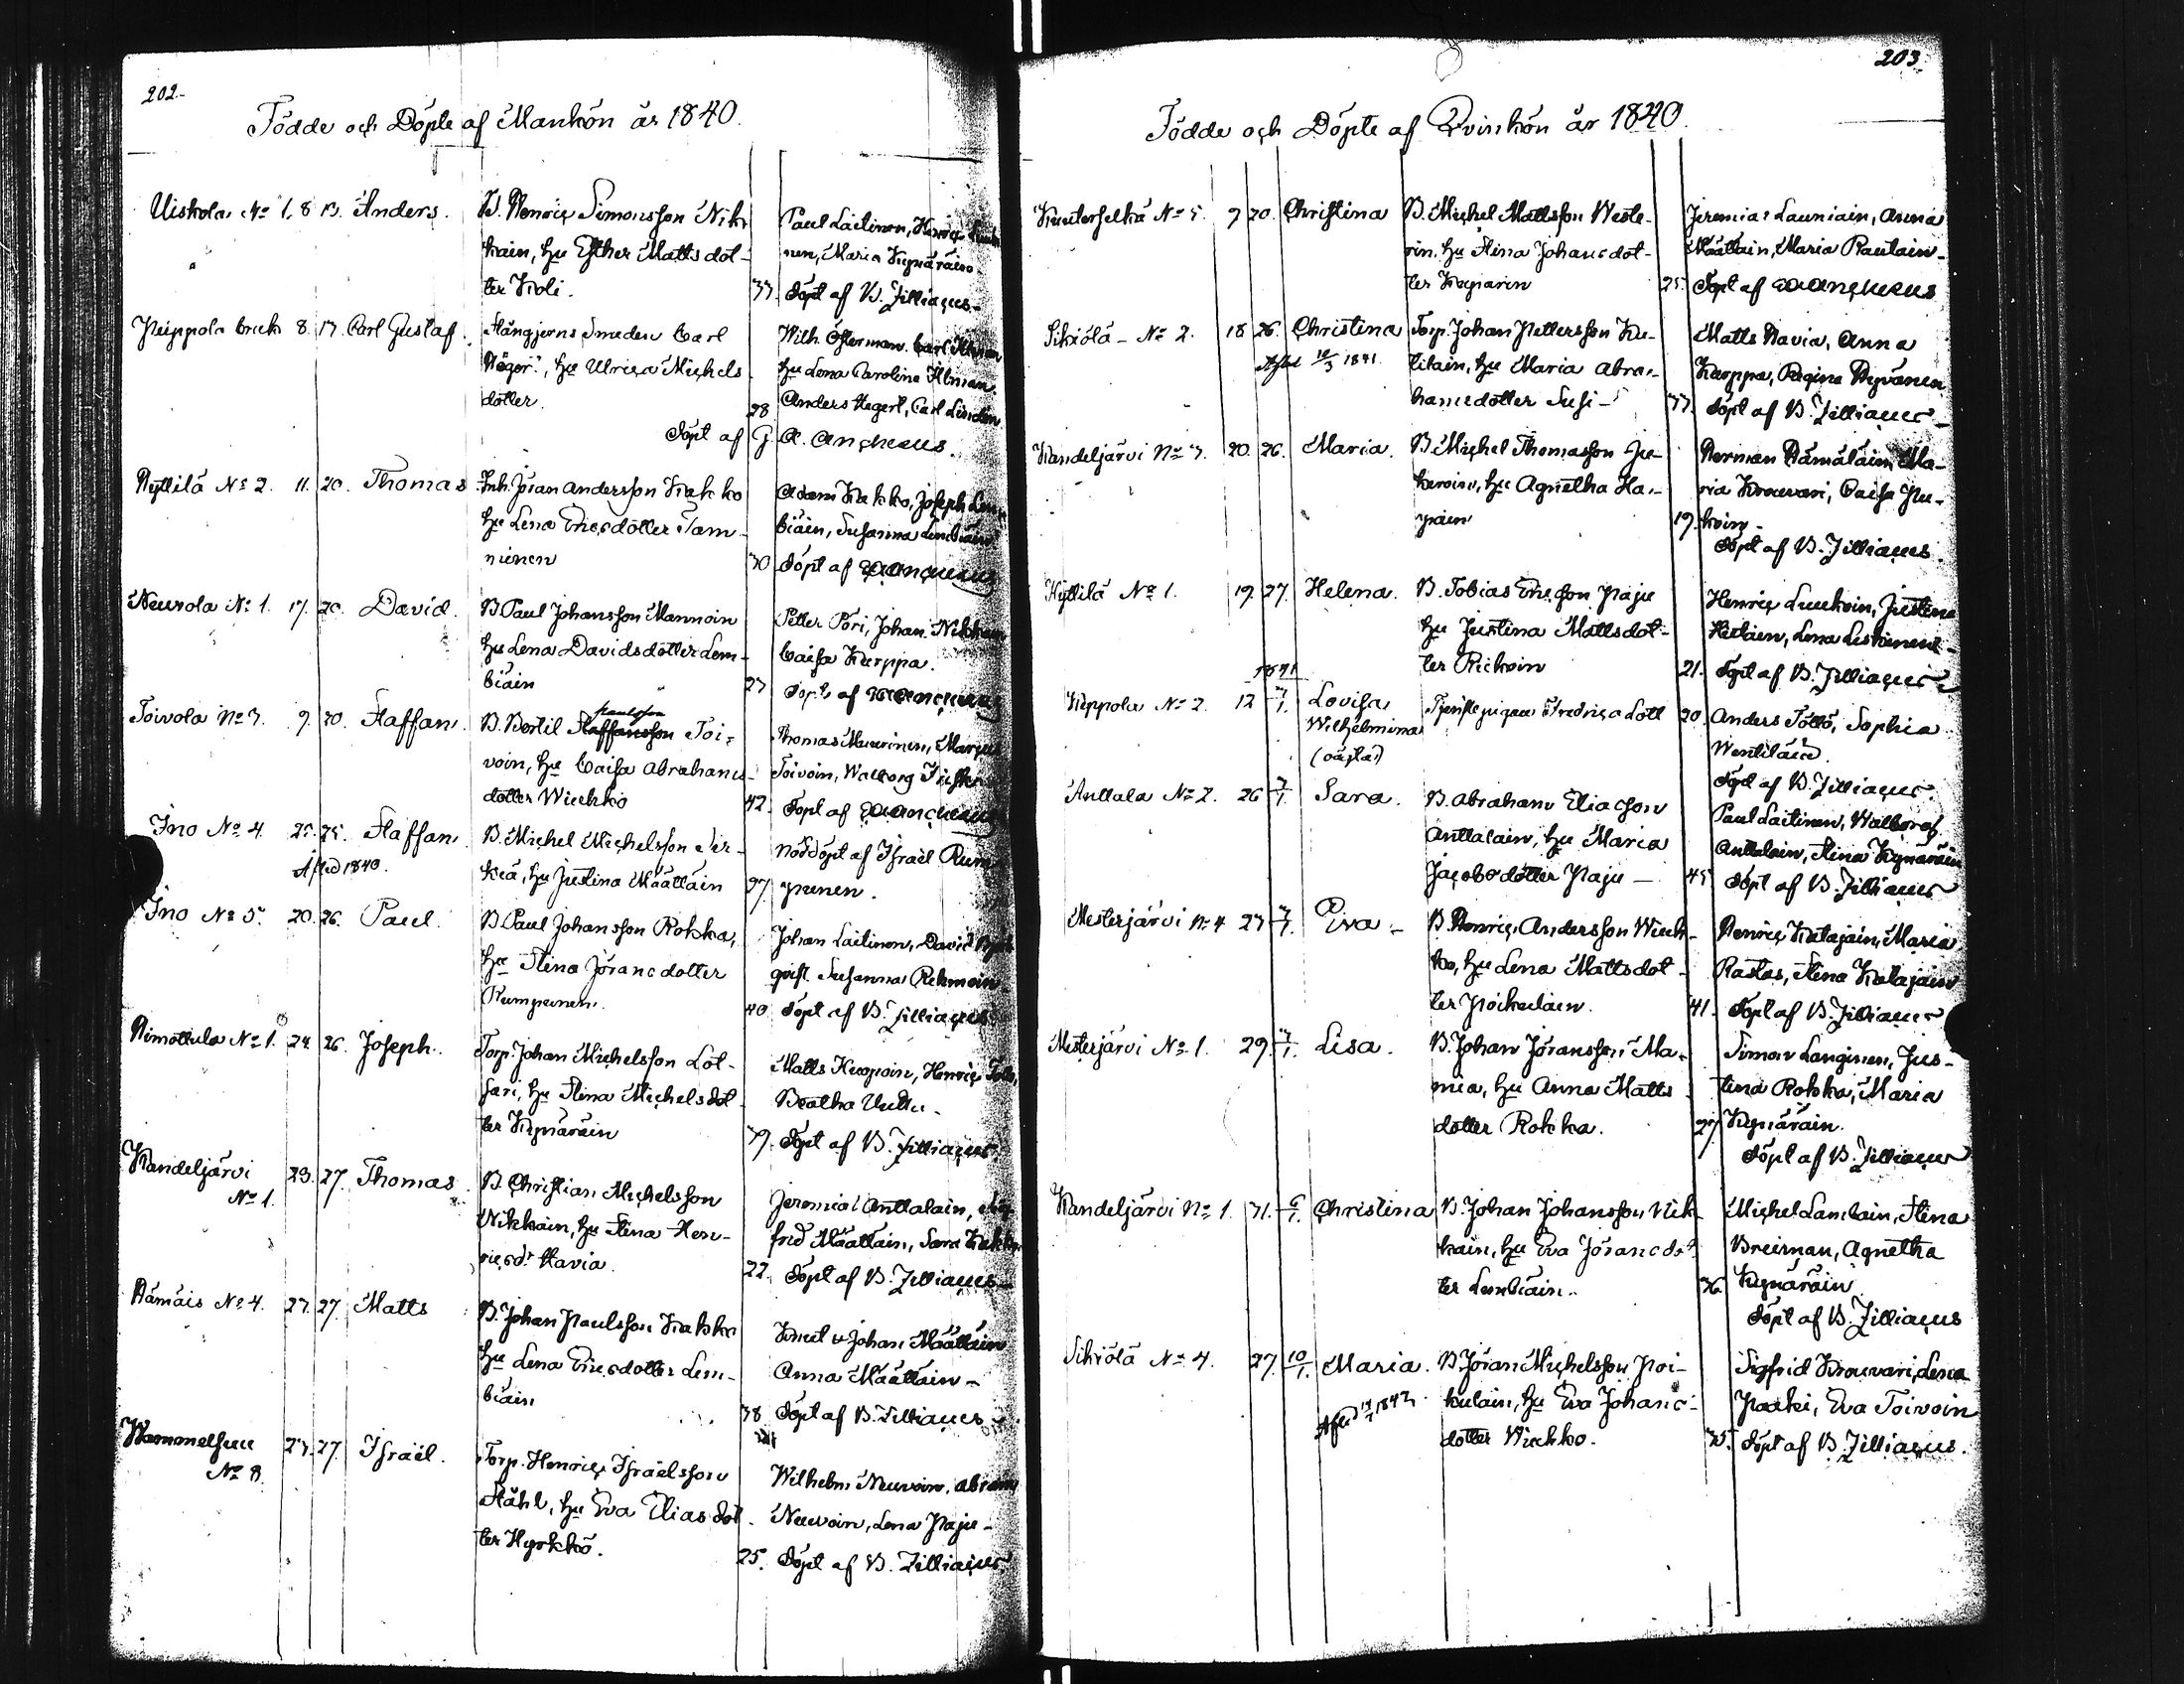 202.
Födde och Döpte af Mankön år 1840.
Uiskola No 1. 8 13. Anders. B. Henric Simonsson Nik-
kain, hu Esther Mattsdot-
ter Koli. 33.
Paul Laitinen, Henric
nen, Maria Kypäräin
Döpt af B. Zilliacus
Peippola bruk 8. 17. Carl Gustaf. Stångjerns Smeden Carl
Höger, hu Ulrica Michels
dotter. 28
Wilh. Österman. Carl
hu Lena Carolina Ahman.
Anders Hegert, Carl Lindin
Döpt af G. A. Ancheus.
Kyttilä No 2. 11. 20. Thomas Inh. Jöran Andersson Kakko
hu Lena Ericsdotter Tam-
ninen 30
Adam Kakko, Joseph
biäin, Susanna Lembiäin
Döpt af GAAncheus
Neuvola No 1. 17. 20. David. B. Paul Johansson Mannoin
hu Lena Davidsdotter Lem-
biäin 27
Petter Pöri, Johan Nikkain
Caisa Kurppa.
Döpt af GAAncheus
Toivola No 3. 9. 20. Staffan. B. Bertil Staffansson Paulsson Toi-
voin, hu Caisa Abrahams-
dotter Wiukko 42.
Thomas Muurinen, Margeta
Toivoin, Walborg
Döpt af GAAncheus
Ino No 4. 25. 25. Staffan. B. Michel Michelsson Sir-
Afled 1840. kiä, hu Justina Määttäin 37
Nöddöpt af Israel Rum-
punen.
Ino No 5. 20. 26. Paul. B. Paul Johansson Rokka,
hu Stina Jöransdotter
Rumpunen. 40
Johan Laitinen, David
qvist. Susanna Rehmoin
Döpt af B. Zilliacus
Rimottula No 1. 24. 26. Joseph. Torp. Johan Michelsson Lot-
sari, hu Stina Michelsdot-
ter Kypäräin 39.
Matts Kuopoin, Henric
Beatha Uuttu.
Döpt af B. Zilliacus.
Kandeljärvi
No 1. 23. 27. Thomas. B. Christian Michelsson
Nikkain, hu Stina Hen-
ricsdr Havia. 22.
Jeremias Anttalain, Sig-
frid Määttäin, Sara Kakko
Döpt af B. Zilliacus
Hämäis No 4. 27. 27. Matts B. Johan Paulsson Kakko
hu Lena Ericsdotter Lem-
biäin 38
Knut o Johan Määttäin
Anna Määttäin
Döpt af B. Zilliacus
Wammelsuu
No 8. 27. 27. Israël. Torp. Henric Israelsson
Ståhl, hu Eva Eliasdot-
ter Hyrkkö. 25.
Wilhelm Neuvoin, Abram
Neuvoin, Lena Paju
Döpt af B. Zilliacus.
203.
Födde och Döpte af Qvinkön år 1840.
Kuuterselkä No 5. 9 20. Christina B. Michel Mattsson Weste-
rin. hu Stina Johansdot-
ter Kuparin 25.
Jeremias Launiain, Anna
Määttäin, Maria Rautain
Döpt af GAAncheus
Sikiölä No 2. 18 26. Christina Torp. Johan Pettersson Ku-
Afled 10/3 1841. titain, hu Maria Abra-
hamsdotter Susi 33.
Matts Havia, Anna
Kurppa, Regina Hyvänen
Döpt af B. Zilliacus
Kandeljärvi No 3. 20. 26. Maria. B. Michel Thomasson Ju-
keroin, hu Agnetha Ha-
päin 19.
Herman Hämäläin, Ma-
ria Krouvari, Caisa Pu-
koin
Döpt af B. Zilliacus.
Kyttilä No 1. 19. 27. Helena. B. Tobias Ericsson Paju
hu Justina Mattsdot-
ter Rickoin 21.
Henric Luukoin, Justina
Hutain, Lena Leskinen
Döpt af B. Zilliacus
1841
Kippola No 2. 12 3/1. Lovisa
Wilhelmina
(oägta) Tjenstepigan Fredrica Lott 20.
Anders Töttö, Sophia
Wentiläin.
Döpt af B. Zilliacus.
Anttala No 2. 26 3/1. Sara. B. Abraham Eliasson
Anttalain, hu Maria
Jacobsdotter Paju 45
Paul Laitinen, Walborg
Anttalain, Stina Kypäräin
Döpt af B. Zilliacus
Mesterjärvi No 4 27 3/1. Eva. B. Henric Andersson Wiuk-
ko, hu Lena Mattsdot-
ter Poikulain. 41.
Henric Katajain, Maria
Rastas, Stina Katajain
Döpt af B. Zilliacus
Mesterjärvi No 1. 29. 3/1. Lisa. B. Johan Jöransson Ma-
mia, hu Anna Matts
dotter Rokka. 27
Simon Langinen, Jus-
tina Rokka, Maria
Kypäräin.
Döpt af B. Zilliacus
Kandeljärvi No 1. 31. 6/1. Christina B. Johan Johansson Nik-
kain, hu Eva Jöransdot-
ter Lembiäin. 36
Michel Lambain, Stina
Breiman, Agnetha
Kypäräin
Döpt af B. Zilliacus
Sikiölä No 4. 27. 10/1. Maria. B. Jöran Michelsson Poi-
kulain, hu Eva Johans-
dotter Wiukko. 35.
Sigfrid Krouvari, Lena
Paaki, Eva Toivoin
Döpt af B. Zilliacus.